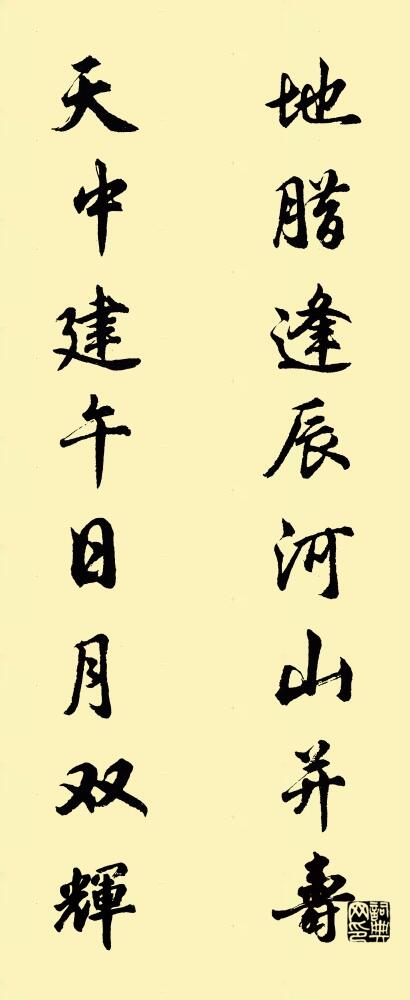 地腊逢辰河山并壽
天中建午日月双輝
詞典网印